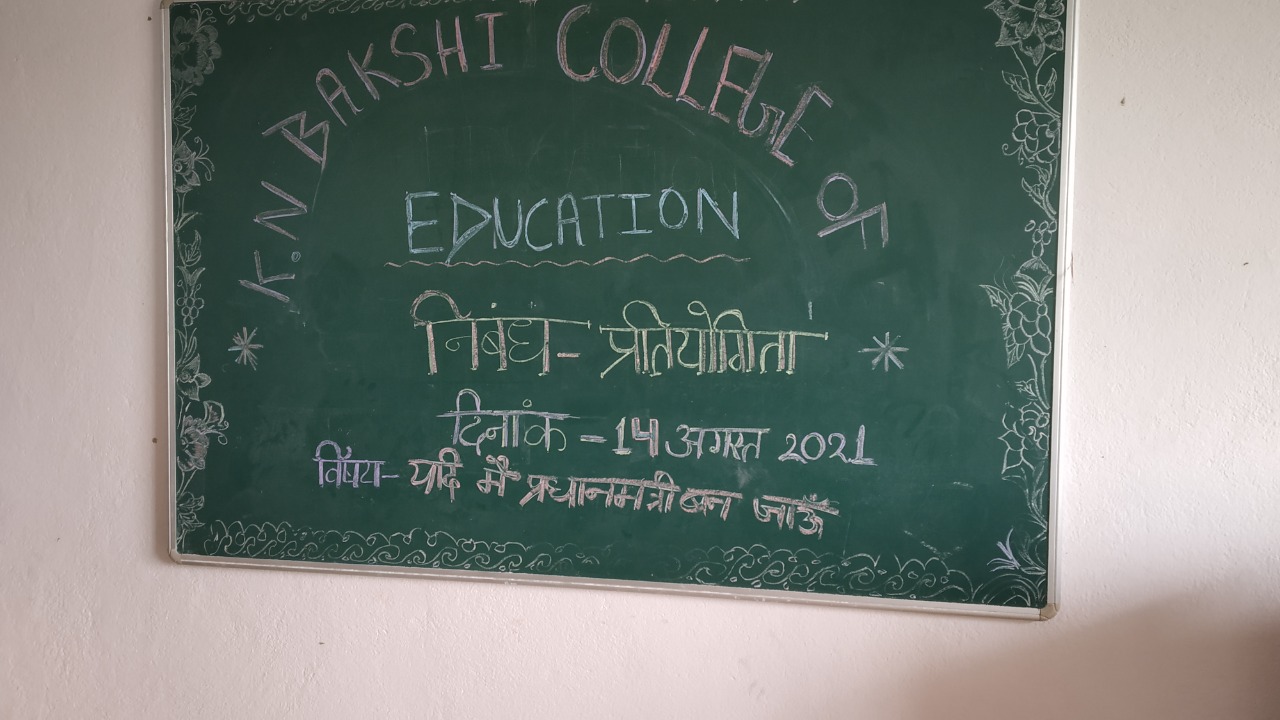 K.N. BAKSHI COLLEGE OF
EDUCATION
निबंध- प्रतियोगिता
दिनांक - 14 अगस्त 2021
विषय- यदि मै प्रधानमत्री बन जाऊँ